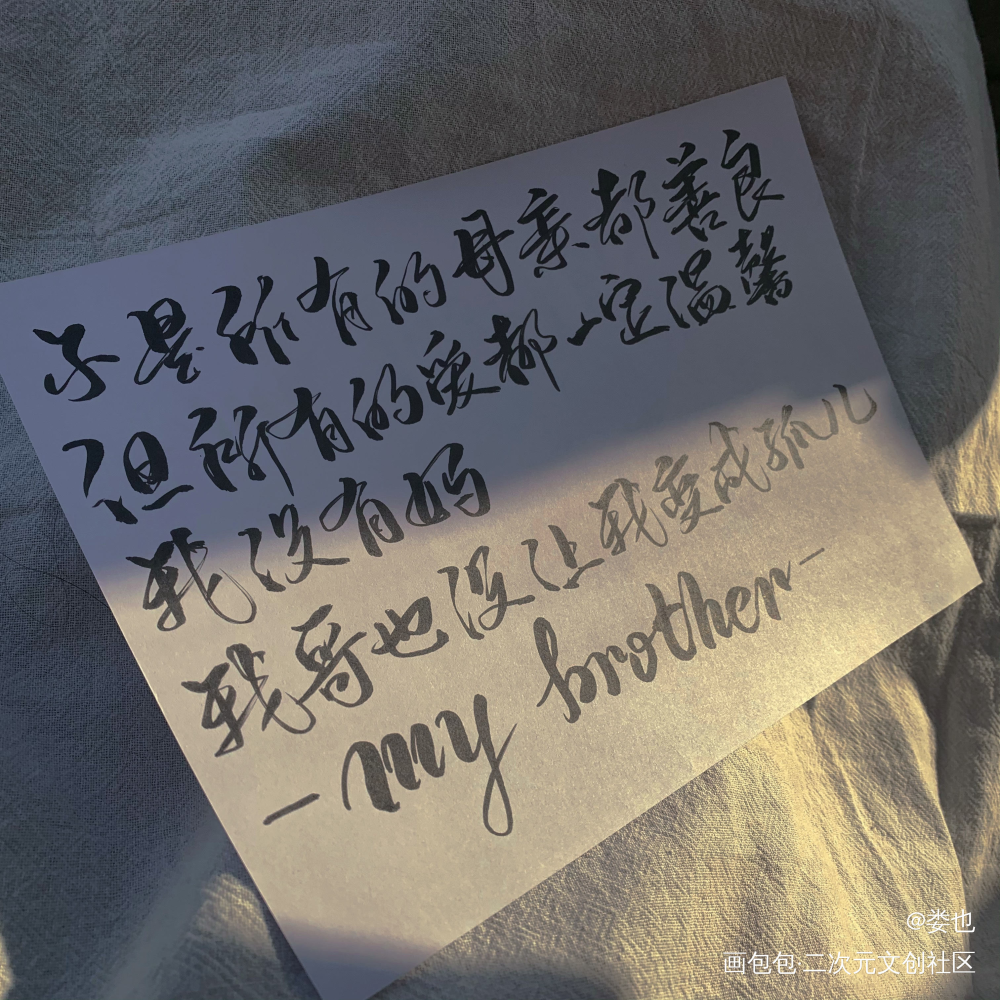 不是所有的母亲都善良
但所有的爱都一定温馨
我没有妈
我哥也没让我变成孤儿
-my brother-
@娄也
画包包·二次元文创社区